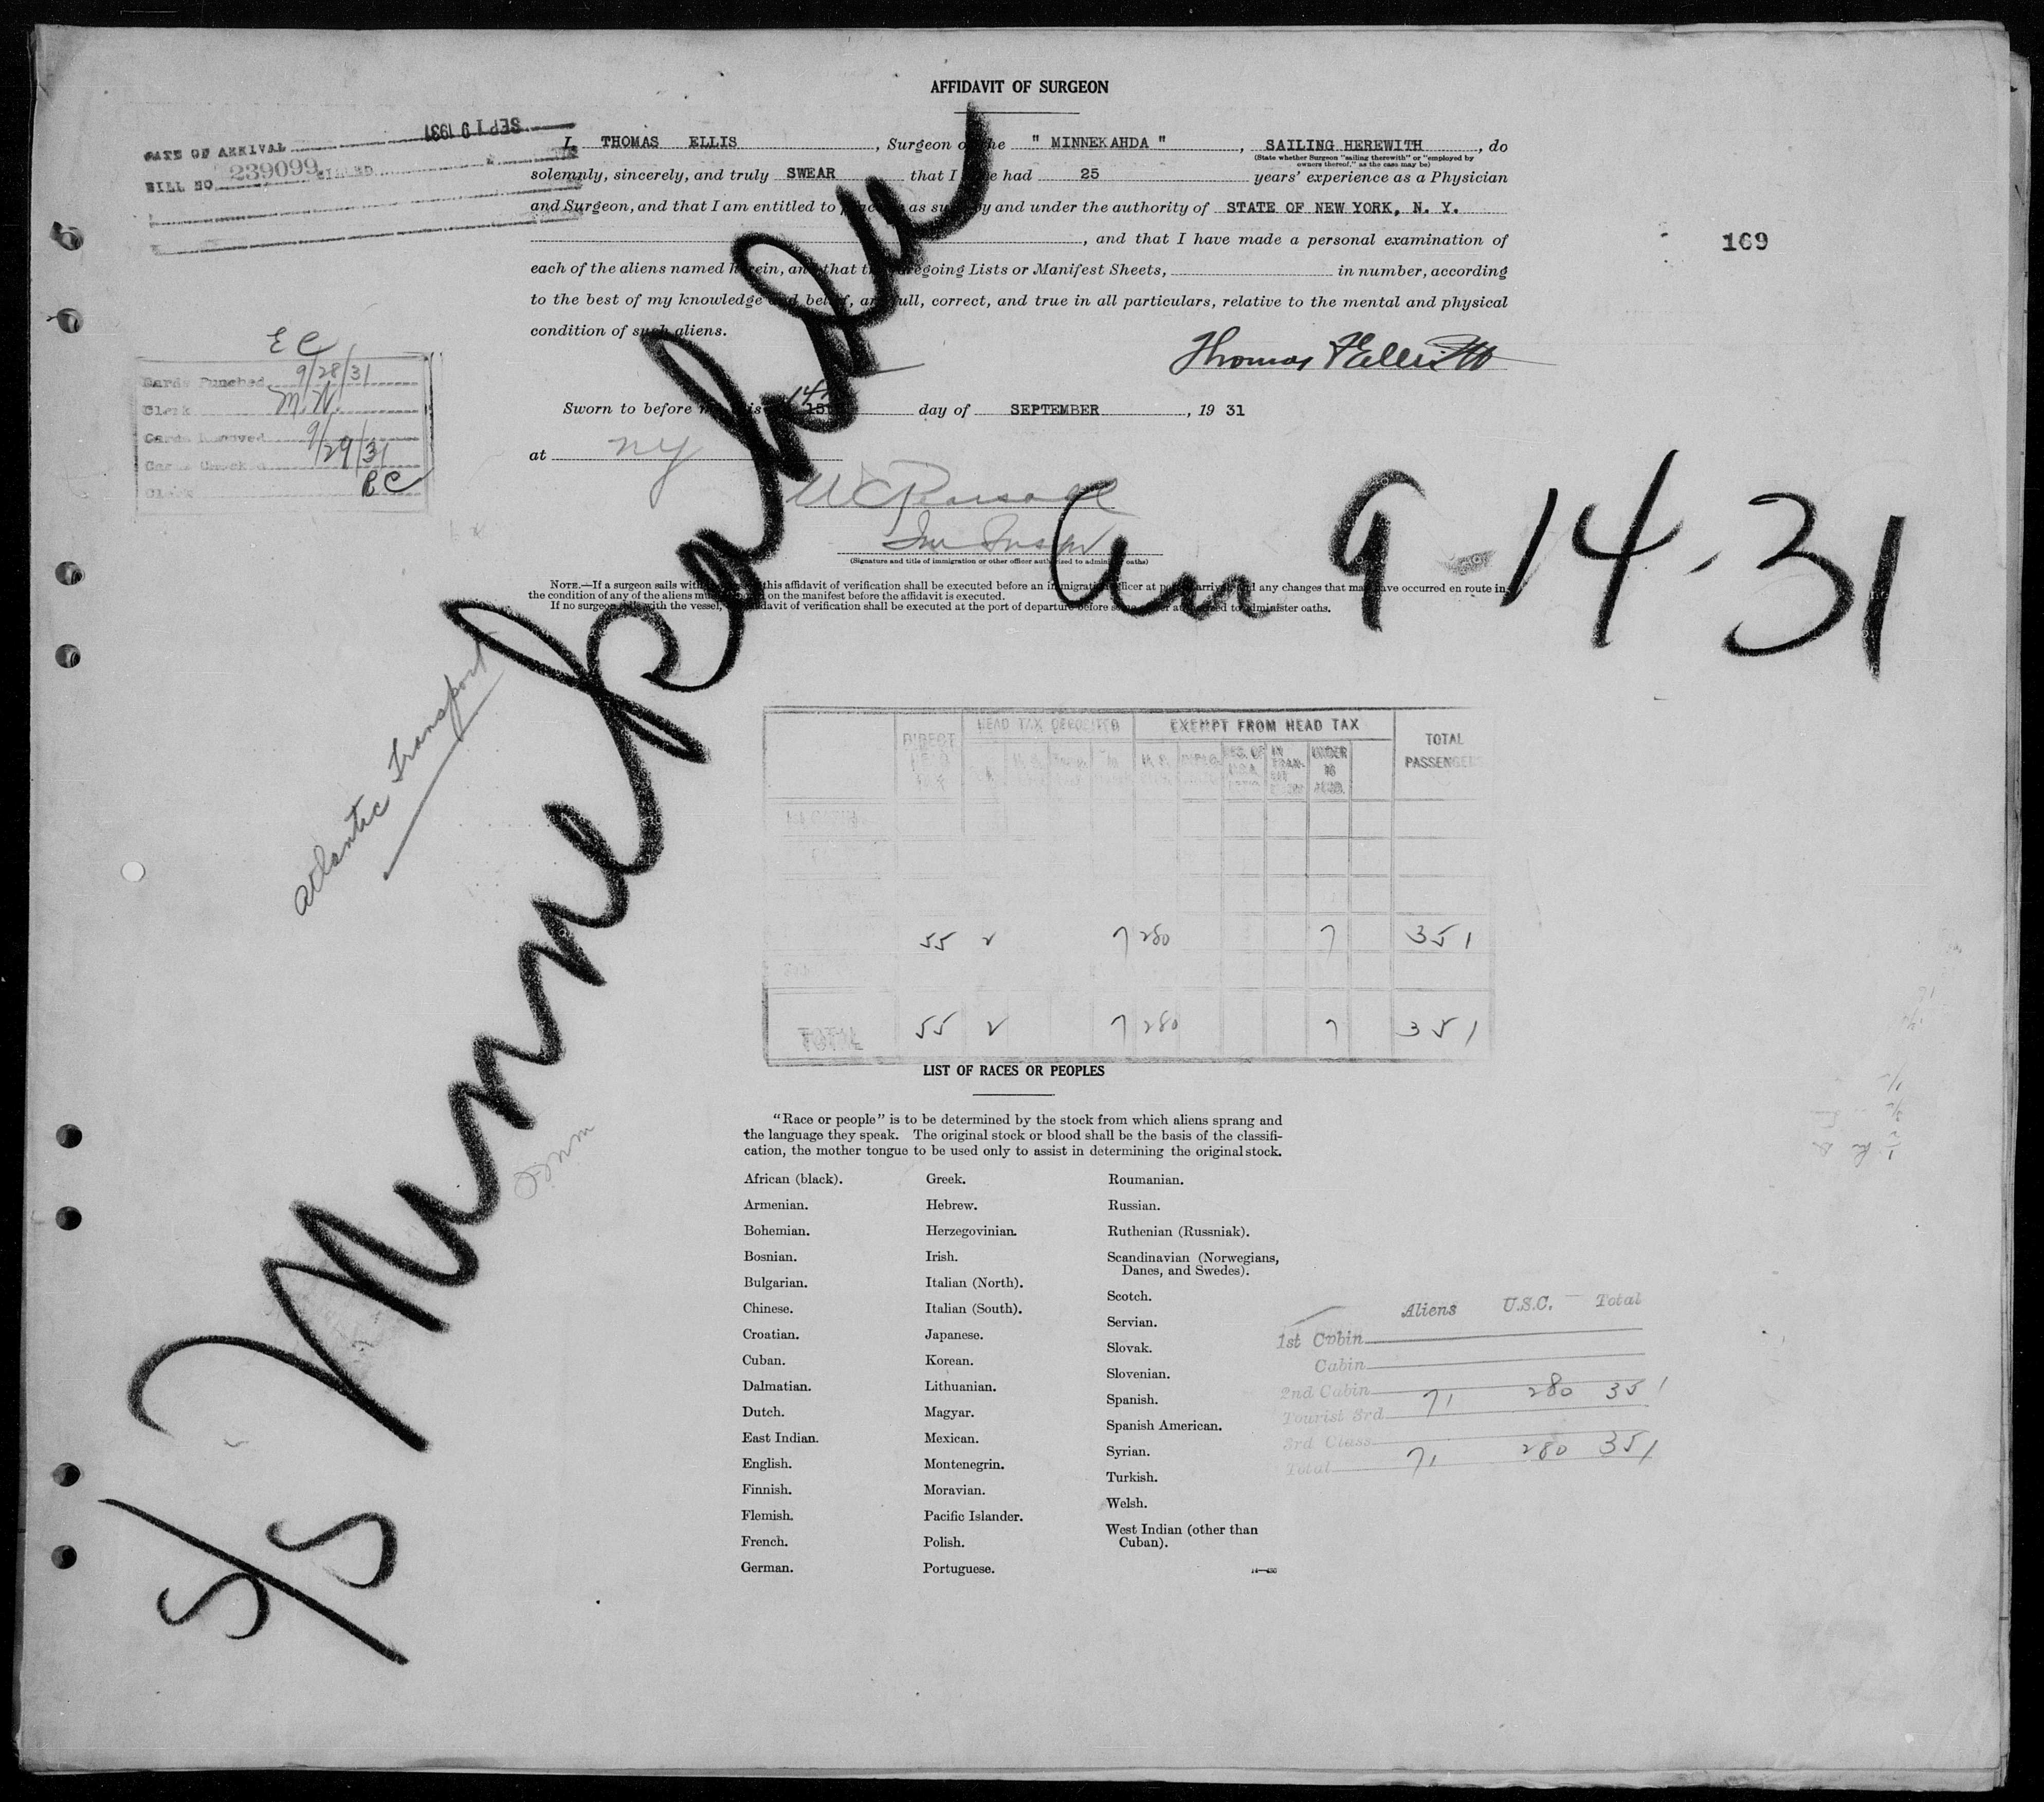 AFFIDAVIT OF SURGEON
SEP 19 1931
DATE OF ARRIVAL
BILL NO. 239099
I, THOMAS ELLIS, Surgeon of the " MINNEKAHDA ", SAILING HEREWITH, do
(State whether Surgeon "sailing therewith" or "employed by
owners thereof," as the case may be)
solemnly, sincerely, and truly SWEAR that I have had 25 years' experience as a Physician
and Surgeon, and that I am entitled to practice as such by and under the authority of STATE OF NEW YORK, N. Y.
, and that I have made a personal examination of
169
each of the aliens named herein, and that the foregoing Lists or Manifest Sheets, in number, according
to the best of my knowledge and belief, are full, correct, and true in all particulars, relative to the mental and physical
condition of such aliens.
E C
Cards Punched 9/28/31
Clerk M.W.
Cards Removed
Cards Checked 9/29/31
Clerk BC
Sworn to before me this 14th day of SEPTEMBER, 19 31
at NY
(Signature and title of immigration or other officer authorized to administer oaths)
S/S Minnekahda
9-14-31
NOTE.—If a surgeon sails with the vessel, this affidavit of verification shall be executed before an immigration officer at port of arrival and any changes that may have occurred en route in
the condition of any of the aliens must be noted on the manifest before the affidavit is executed.
If no surgeon sails with the vessel, the affidavit of verification shall be executed at the port of departure before some officer authorized to administer oaths.
Atlantic Transport
DIRECT HEAD TAX
HEAD TAX DEPOSITED
EXEMPT FROM HEAD TAX
TOTAL PASSENGERS
IN TRAN-SIT
UNDER 16 ACCO.
55 2 7 280 7 351
TOTAL 55 2 7 280 7 351
LIST OF RACES OR PEOPLES
"Race or people" is to be determined by the stock from which aliens sprang and
the language they speak. The original stock or blood shall be the basis of the classifi-
cation, the mother tongue to be used only to assist in determining the original stock.
African (black).
Armenian.
Bohemian.
Bosnian.
Bulgarian.
Chinese.
Croatian.
Cuban.
Dalmatian.
Dutch.
East Indian.
English.
Finnish.
Flemish.
French.
German.
Greek.
Hebrew.
Herzegovinian.
Irish.
Italian (North).
Italian (South).
Japanese.
Korean.
Lithuanian.
Magyar.
Mexican.
Montenegrin.
Moravian.
Pacific Islander.
Polish.
Portuguese.
Roumanian.
Russian.
Ruthenian (Russniak).
Scandinavian (Norwegians,
Danes, and Swedes).
Scotch.
Servian.
Slovak.
Slovenian.
Spanish.
Spanish American.
Syrian.
Turkish.
Welsh.
West Indian (other than
Cuban).
Aliens U.S.C. Total
1st Cabin
Cabin
2nd Cabin
Tourist 3rd 71 280 351
3rd Class
Total 71 280 351